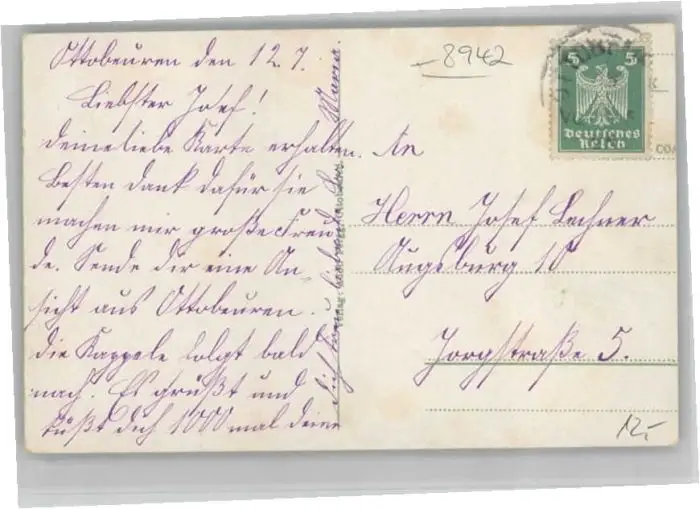 Ottobeuren den 12. 7.
Liebster Josef!
deine liebe Karte erhalten.
Besten dank dafür sie
machen mir große Freu
de. Sende dir eine An
sicht aus Ottobeuren.
die Kappele folgt bald
nach. Es grüßt und
küßt dich 1000 mal deine
dich
8942
5 5
Deutsches
Reich
An
Herrn Josef Lechner
Augsburg 10
Jorgstraße 5.
12,-